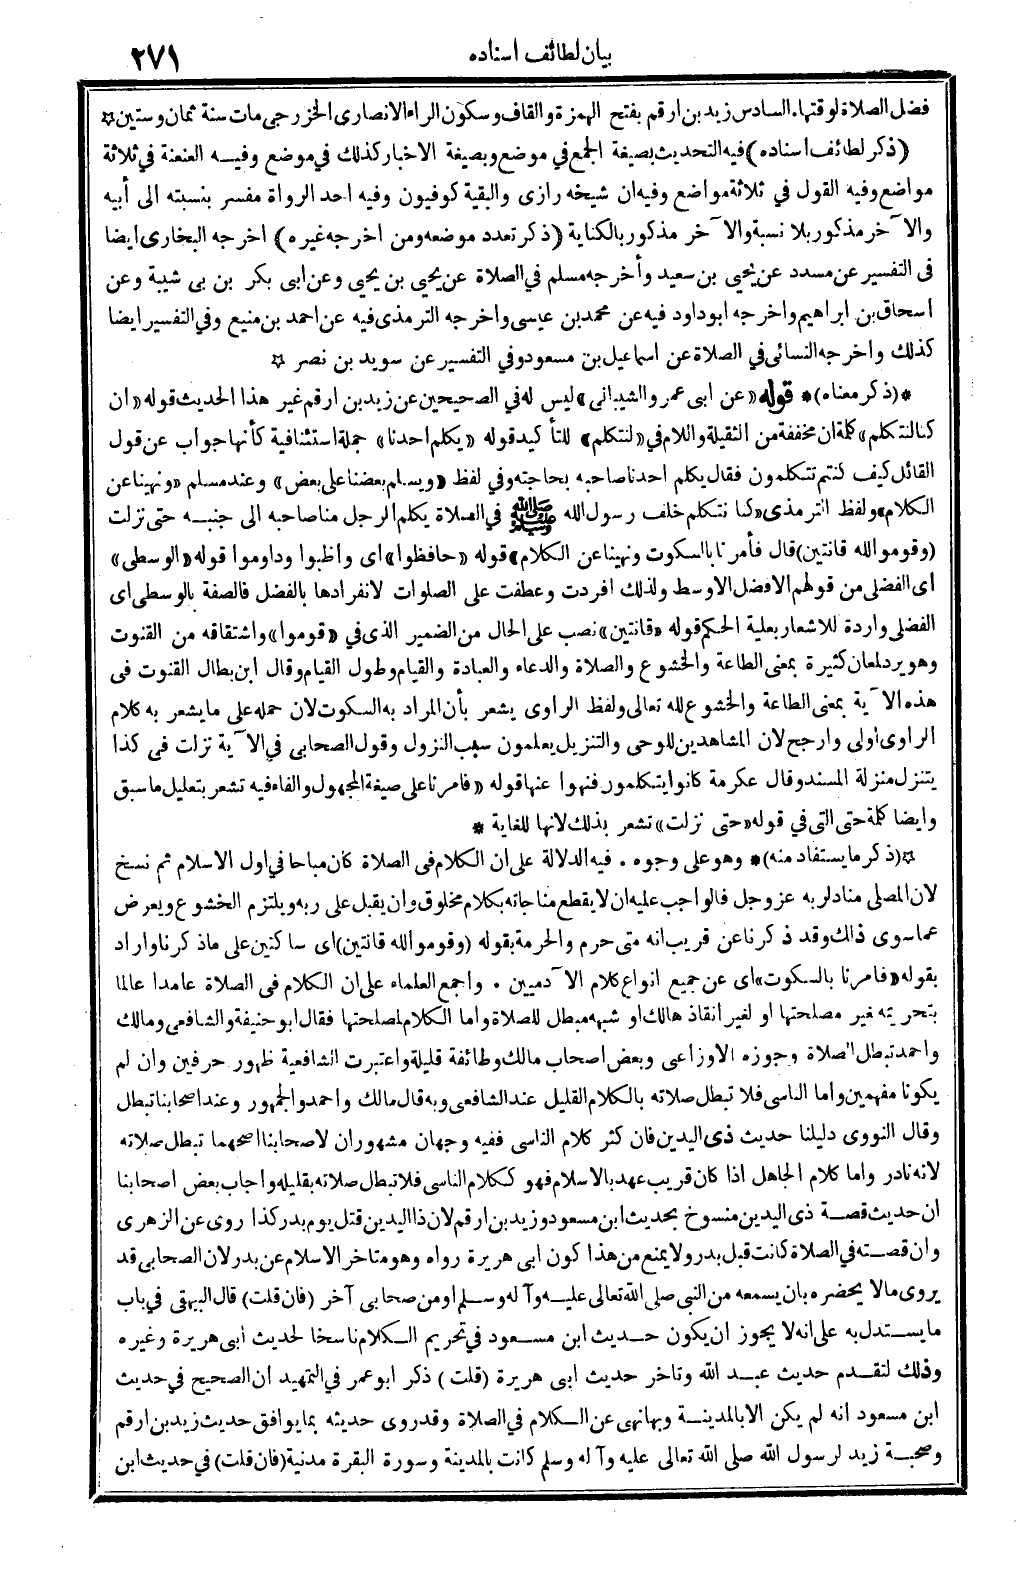 بيان لطائف اسناده ٢٧١
فضل الصلاة لوقتها. السادس زيد بن ارقم بفتح الهمزة والقاف وسكون الراء الانصارى الخزرجى مات سنة ثمان وستين ☆
(ذكر لطائف اسناده) فيه التحديث بصيغة الجمع في موضع وبصيغة الاخبار كذلك في موضع وفيه العنعنة في ثلاثة
مواضع وفيه القول في ثلاثة مواضع وفيه ان شيخه رازى والبقية كوفيون وفيه احد الرواة مفسر بنسبته الى أبيه
والآخر مذكور بلا نسبة والآخر مذكور بالكناية (ذكر تعدد موضعه ومن اخرجه غيره) اخرجه البخارى ايضا
فى التفسير عن مسدد عن يحيى بن سعيد وأخرجه مسلم في الصلاة عن يحيى بن يحيى وعن ابى بكر بن بى شيبة وعن
اسحاق بن ابراهيم واخرجه ابو داود فيه عن محمد بن عيسى واخرجه الترمذى فيه عن احمد بن منيع وفي التفسير ايضا
كذلك واخرجه النسائى في الصلاة عن اسماعيل بن مسعود وفي التفسير عن سويد بن نصر ☆
*(ذكر معناه)* قوله «عن ابى عمرو الشيبانى» ليس له في الصحيحين عن زيد بن ارقم غير هذا الحديث قوله «ان
كنا لنتكلم» كلمة ان مخففة من الثقيلة واللام في «لنتكلم» للتأكيد قوله «يكلم احدنا» جملة استئنافية كأنها جواب عن قول
القائل كيف كنتم تتكلمون فقال يكلم احدنا صاحبه بحاجته وفي لفظ «ويسلم بعضنا على بعض» وعند مسلم «ونهينا عن
الكلام» ولفظ الترمذى «كنا نتكلم خلف رسول الله ﷺ في الصلاة يكلم الرجل منا صاحبه الى جنبه حتى نزلت
(وقوموا لله قانتين) قال فأمرنا بالسكوت ونهينا عن الكلام» قوله «حافظوا» اى واظبوا وداوموا قوله «الوسطى»
اى الفضلى من قولهم الافضل الاوسط ولذلك افردت وعطفت على الصلوات لانفرادها بالفضل فالصفة بالوسطى اى
الفضلى واردة للاشعار بعلية الحكم قوله «قانتين» نصب على الحال من الضمير الذى في «قوموا» واشتقاقه من القنوت
وهو يرد لمعان كثيرة بمعنى الطاعة والخشوع والصلاة والدعاء والعبادة والقيام وطول القيام وقال ابن بطال القنوت فى
هذه الآية بمعنى الطاعة والخشوع لله تعالى ولفظ الراوى يشعر بأن المراد به السكوت لان حمله على ما يشعر به كلام
الراوى اولى وارجح لان المشاهدين للوحى والتنزيل يعلمون سبب النزول وقول الصحابى في الآية نزلت فى كذا
يتنزل منزلة المسند وقال عكرمة كانوا يتكلمون فنهوا عنها قوله «فامرنا على صيغة المجهول والفاء فيه تشعر بتعليل ما سبق
وايضا كلمة حتى التى في قوله «حتى نزلت» تشعر بذلك لانها للغاية *
☆(ذكر ما يستفاد منه)* وهو على وجوه . فيه الدلالة على ان الكلام فى الصلاة كان مباحا في اول الاسلام ثم نسخ
لان المصلى مناد لربه عز وجل فالواجب عليه ان لا يقطع مناجاته بكلام مخلوق وان يقبل على ربه ويلتزم الخشوع ويعرض
عما سوى ذلك وقد ذكرنا عن قريب انه متى حرم والحرمة بقوله (وقوموا لله قانتين) اى ساكنين على ما ذكرنا واراد
بقوله «فامرنا بالسكوت» اى عن جميع انواع كلام الآدميين . واجمع العلماء على ان الكلام فى الصلاة عامدا عالما
بتحريمه غير مصلحتها او لغير انقاذ هالك او شبهه مبطل للصلاة واما الكلام لمصلحتها فقال ابو حنيفة والشافعى ومالك
واحمد تبطل الصلاة وجوزه الاوزاعى وبعض اصحاب مالك وطائفة قليلة واعتبرت الشافعية ظهور حرفين وان لم
يكونا مفهمين واما الناسى فلا تبطل صلاته بالكلام القليل عند الشافعى وبه قال مالك واحمد والجمهور وعند اصحابنا تبطل
وقال النووى دليلنا حديث ذى اليدين فان كثر كلام الناسى ففيه وجهان مشهوران لاصحابنا اصحهما تبطل صلاته
لانه نادر واما كلام الجاهل اذا كان قريب عهد بالاسلام فهو ككلام الناسى فلا تبطل صلاته بقليله واجاب بعض اصحابنا
ان حديث قصة ذى اليدين منسوخ بحديث ابن مسعود وزيد بن ارقم لان ذا اليدين قتل يوم بدر كذا روى عن الزهرى
وان قصته في الصلاة كانت قبل بدر ولا يمنع من هذا كون ابى هريرة رواه وهو متاخر الاسلام عن بدر لان الصحابى قد
يروى ما لا يحضره بان يسمعه من النبى صلى الله تعالى عليه وآله وسلم او من صحابى آخر (فان قلت) قال البيهقى في باب
ما يستدل به على انه لا يجوز ان يكون حديث ابن مسعود في تحريم الكلام ناسخا لحديث أبى هريرة وغيره
وذلك لتقدم حديث عبد الله وتاخر حديث ابى هريرة (قلت) ذكر ابو عمر في التمهيد ان الصحيح في حديث
ابن مسعود انه لم يكن الا بالمدينة وبها نهى عن الكلام في الصلاة وقد روى حديثه بما يوافق حديث زيد بن ارقم
وصحبة زيد لرسول الله صلى الله تعالى عليه وآله وسلم كانت بالمدينة وسورة البقرة مدنية (فان قلت) في حديث ابن